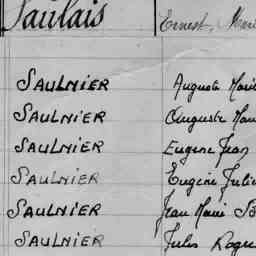 Saulais Ernest, Mari
SAULNIER Auguste Marie
SAULNIER Auguste Mar
SAULNIER Eugene Jean
SAULNIER Eugène Julie
SAULNIER Jean Marie B
SAULNIER Jules Roge